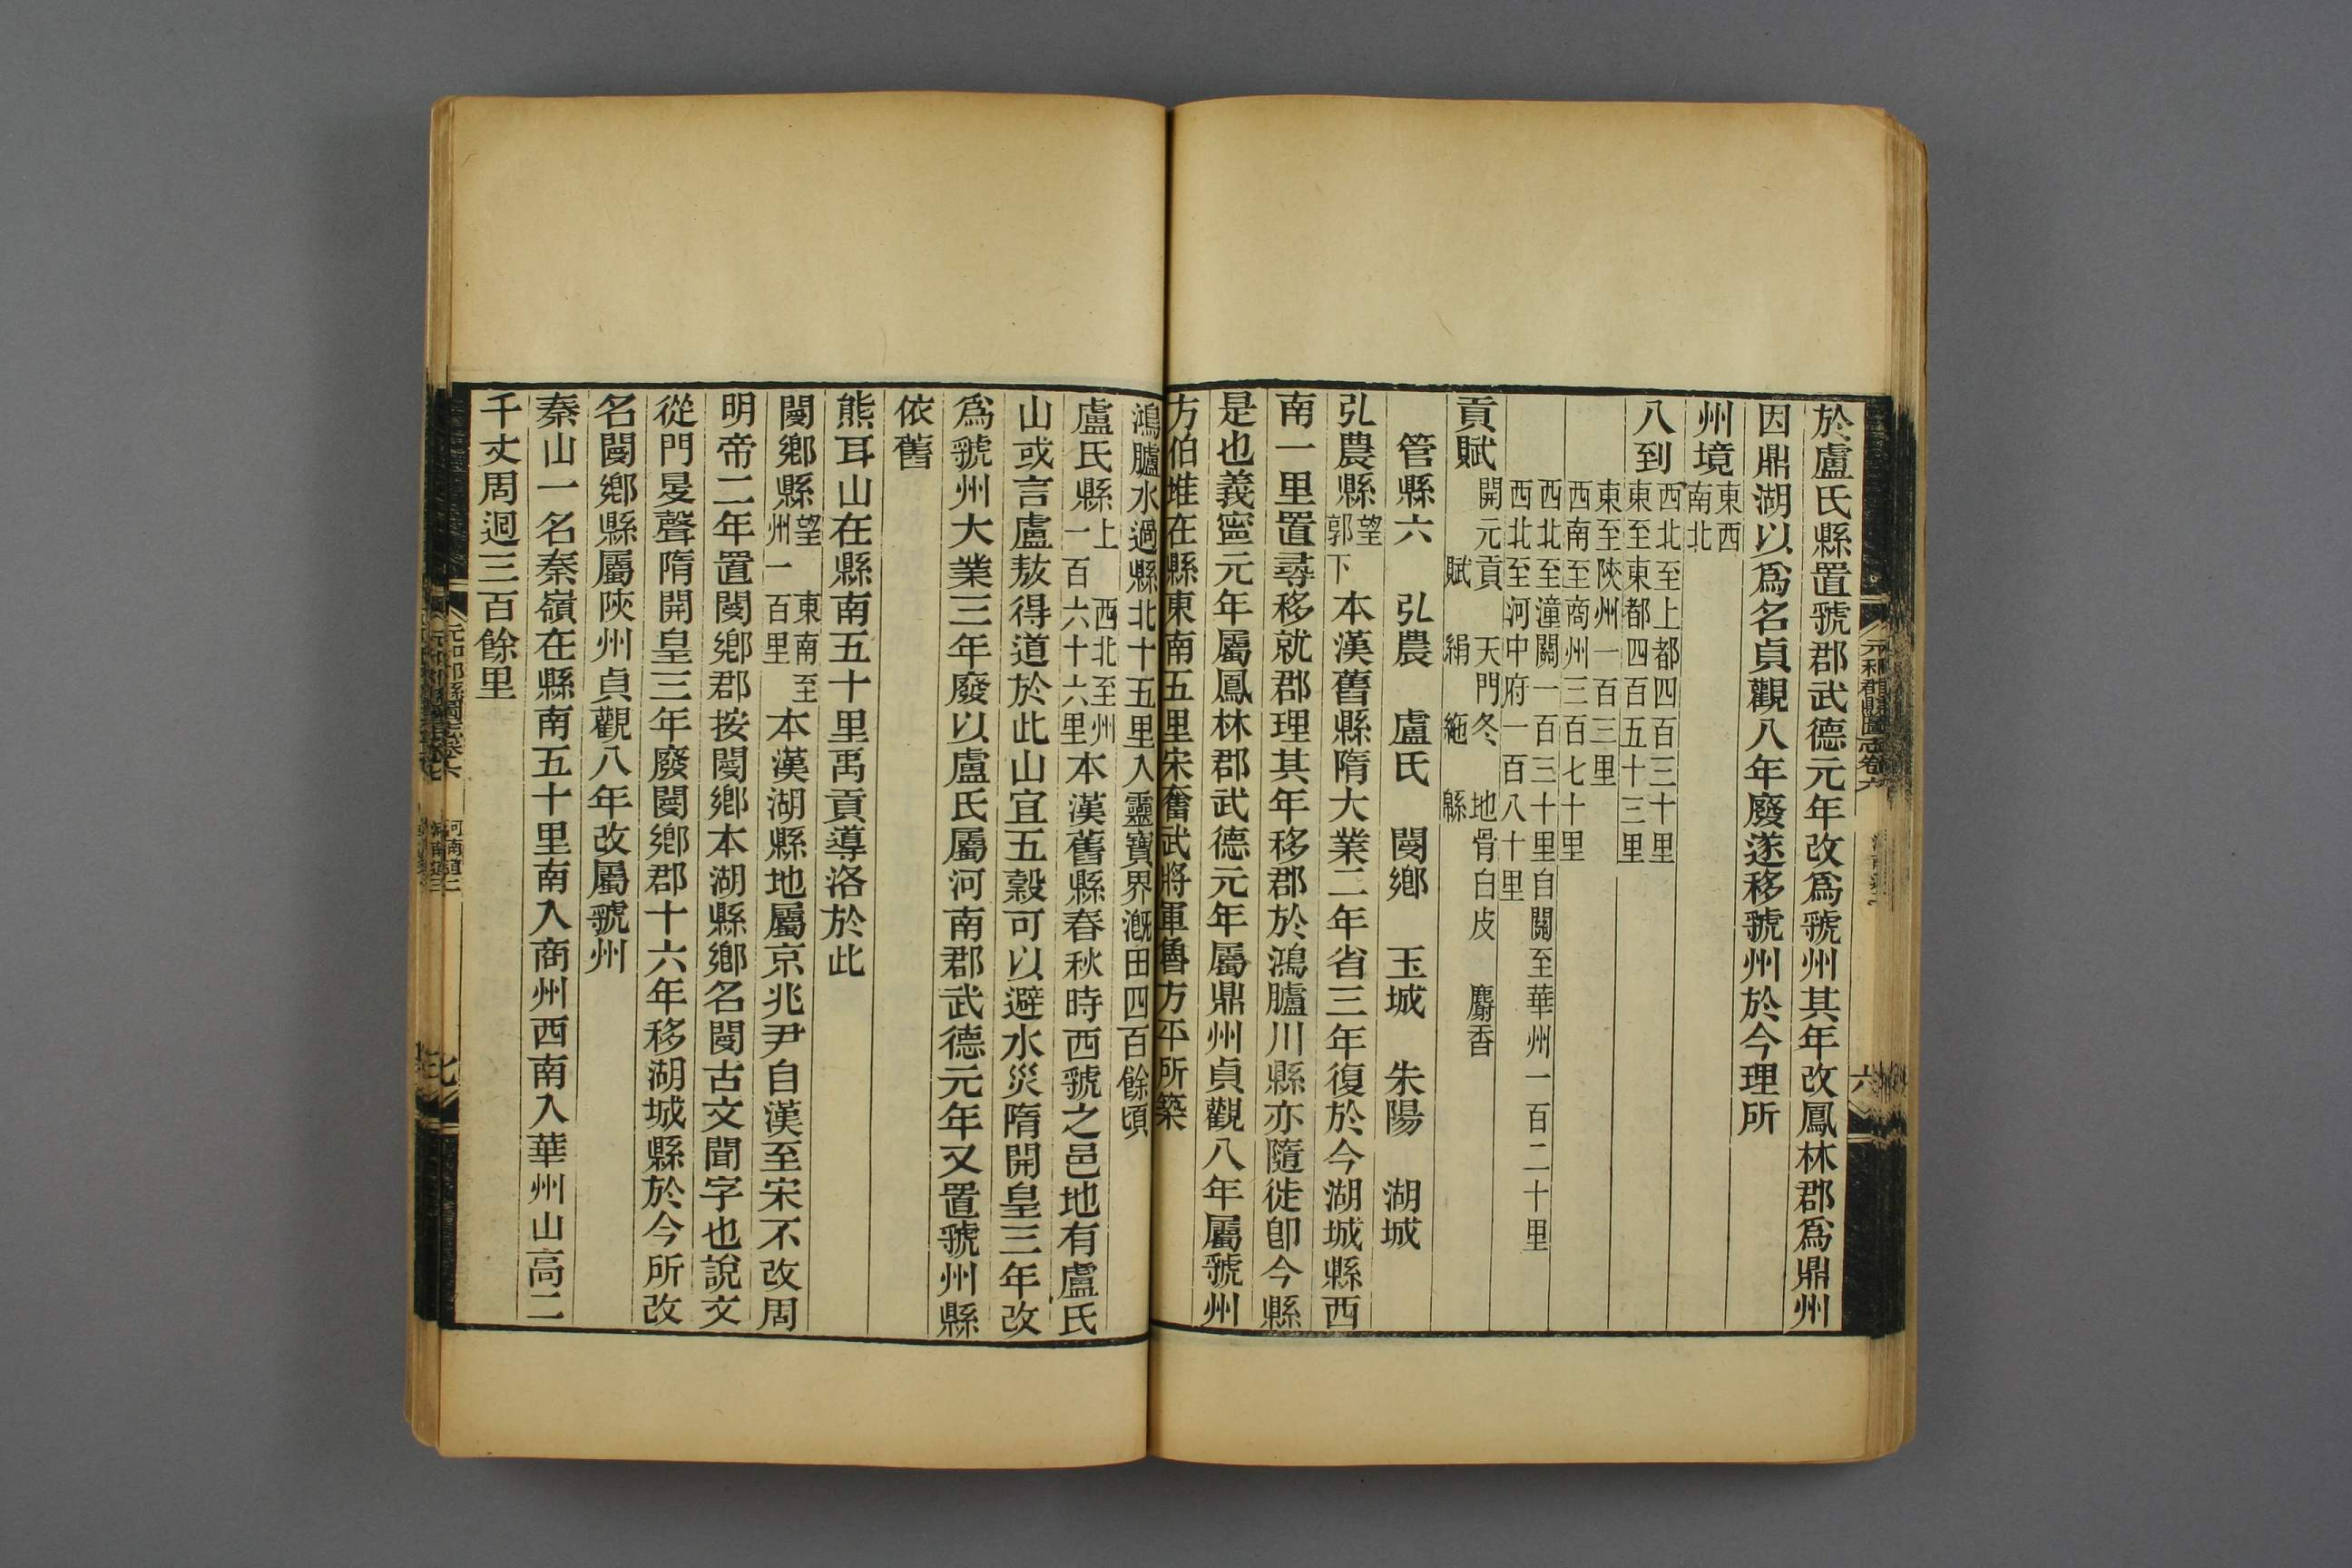 於盧氏縣置虢郡武德元年改爲虢州其年改鳳林郡爲鼎州
因鼎湖以爲名貞觀八年廢遂移虢州於今理所
州境東西
南北
八到西北至上都四百三十里
東至東都四百五十三里
東至陝州一百三里
西南至商州三百七十里
西北至潼關一百三十里自關至華州一百二十里
西北至河中府一百八十里
貢賦開元貢　天門冬　地骨白皮　麝香
賦　絹　絁　緜
管縣六　弘農　盧氏　閿鄉　玉城　朱陽　湖城
弘農縣望
郭下
本漢舊縣隋大業二年省三年復於今湖城縣西
南一里置尋移就郡理其年移郡於鴻臚川縣亦隨徙卽今縣
是也義寧元年屬鳳林郡武德元年屬鼎州貞觀八年屬虢州
方伯堆在縣東南五里宋奮武將軍魯方平所築
鴻臚水過縣北十五里入靈寶界漑田四百餘頃
盧氏縣上　西北至州
一百六十六里
本漢舊縣春秋時西虢之邑地有盧氏
山或言盧敖得道於此山宜五穀可以避水災隋開皇三年改
爲虢州大業三年廢以盧氏屬河南郡武德元年又置虢州縣
依舊
熊耳山在縣南五十里禹貢導洛於此
閿鄉縣望　東南至
州一百里
本漢湖縣地屬京兆尹自漢至宋不改周
明帝二年置閿鄉郡按閿鄉本湖縣鄉名閿古文聞字也說文
從門旻聲隋開皇三年廢閿鄉郡十六年移湖城縣於今所改
名閿鄉縣屬陝州貞觀八年改屬虢州
秦山一名秦嶺在縣南五十里南入商州西南入華州山高二
千丈周迴三百餘里
元和郡縣圖志卷六
六
元和郡縣圖志卷六
河南道二
七